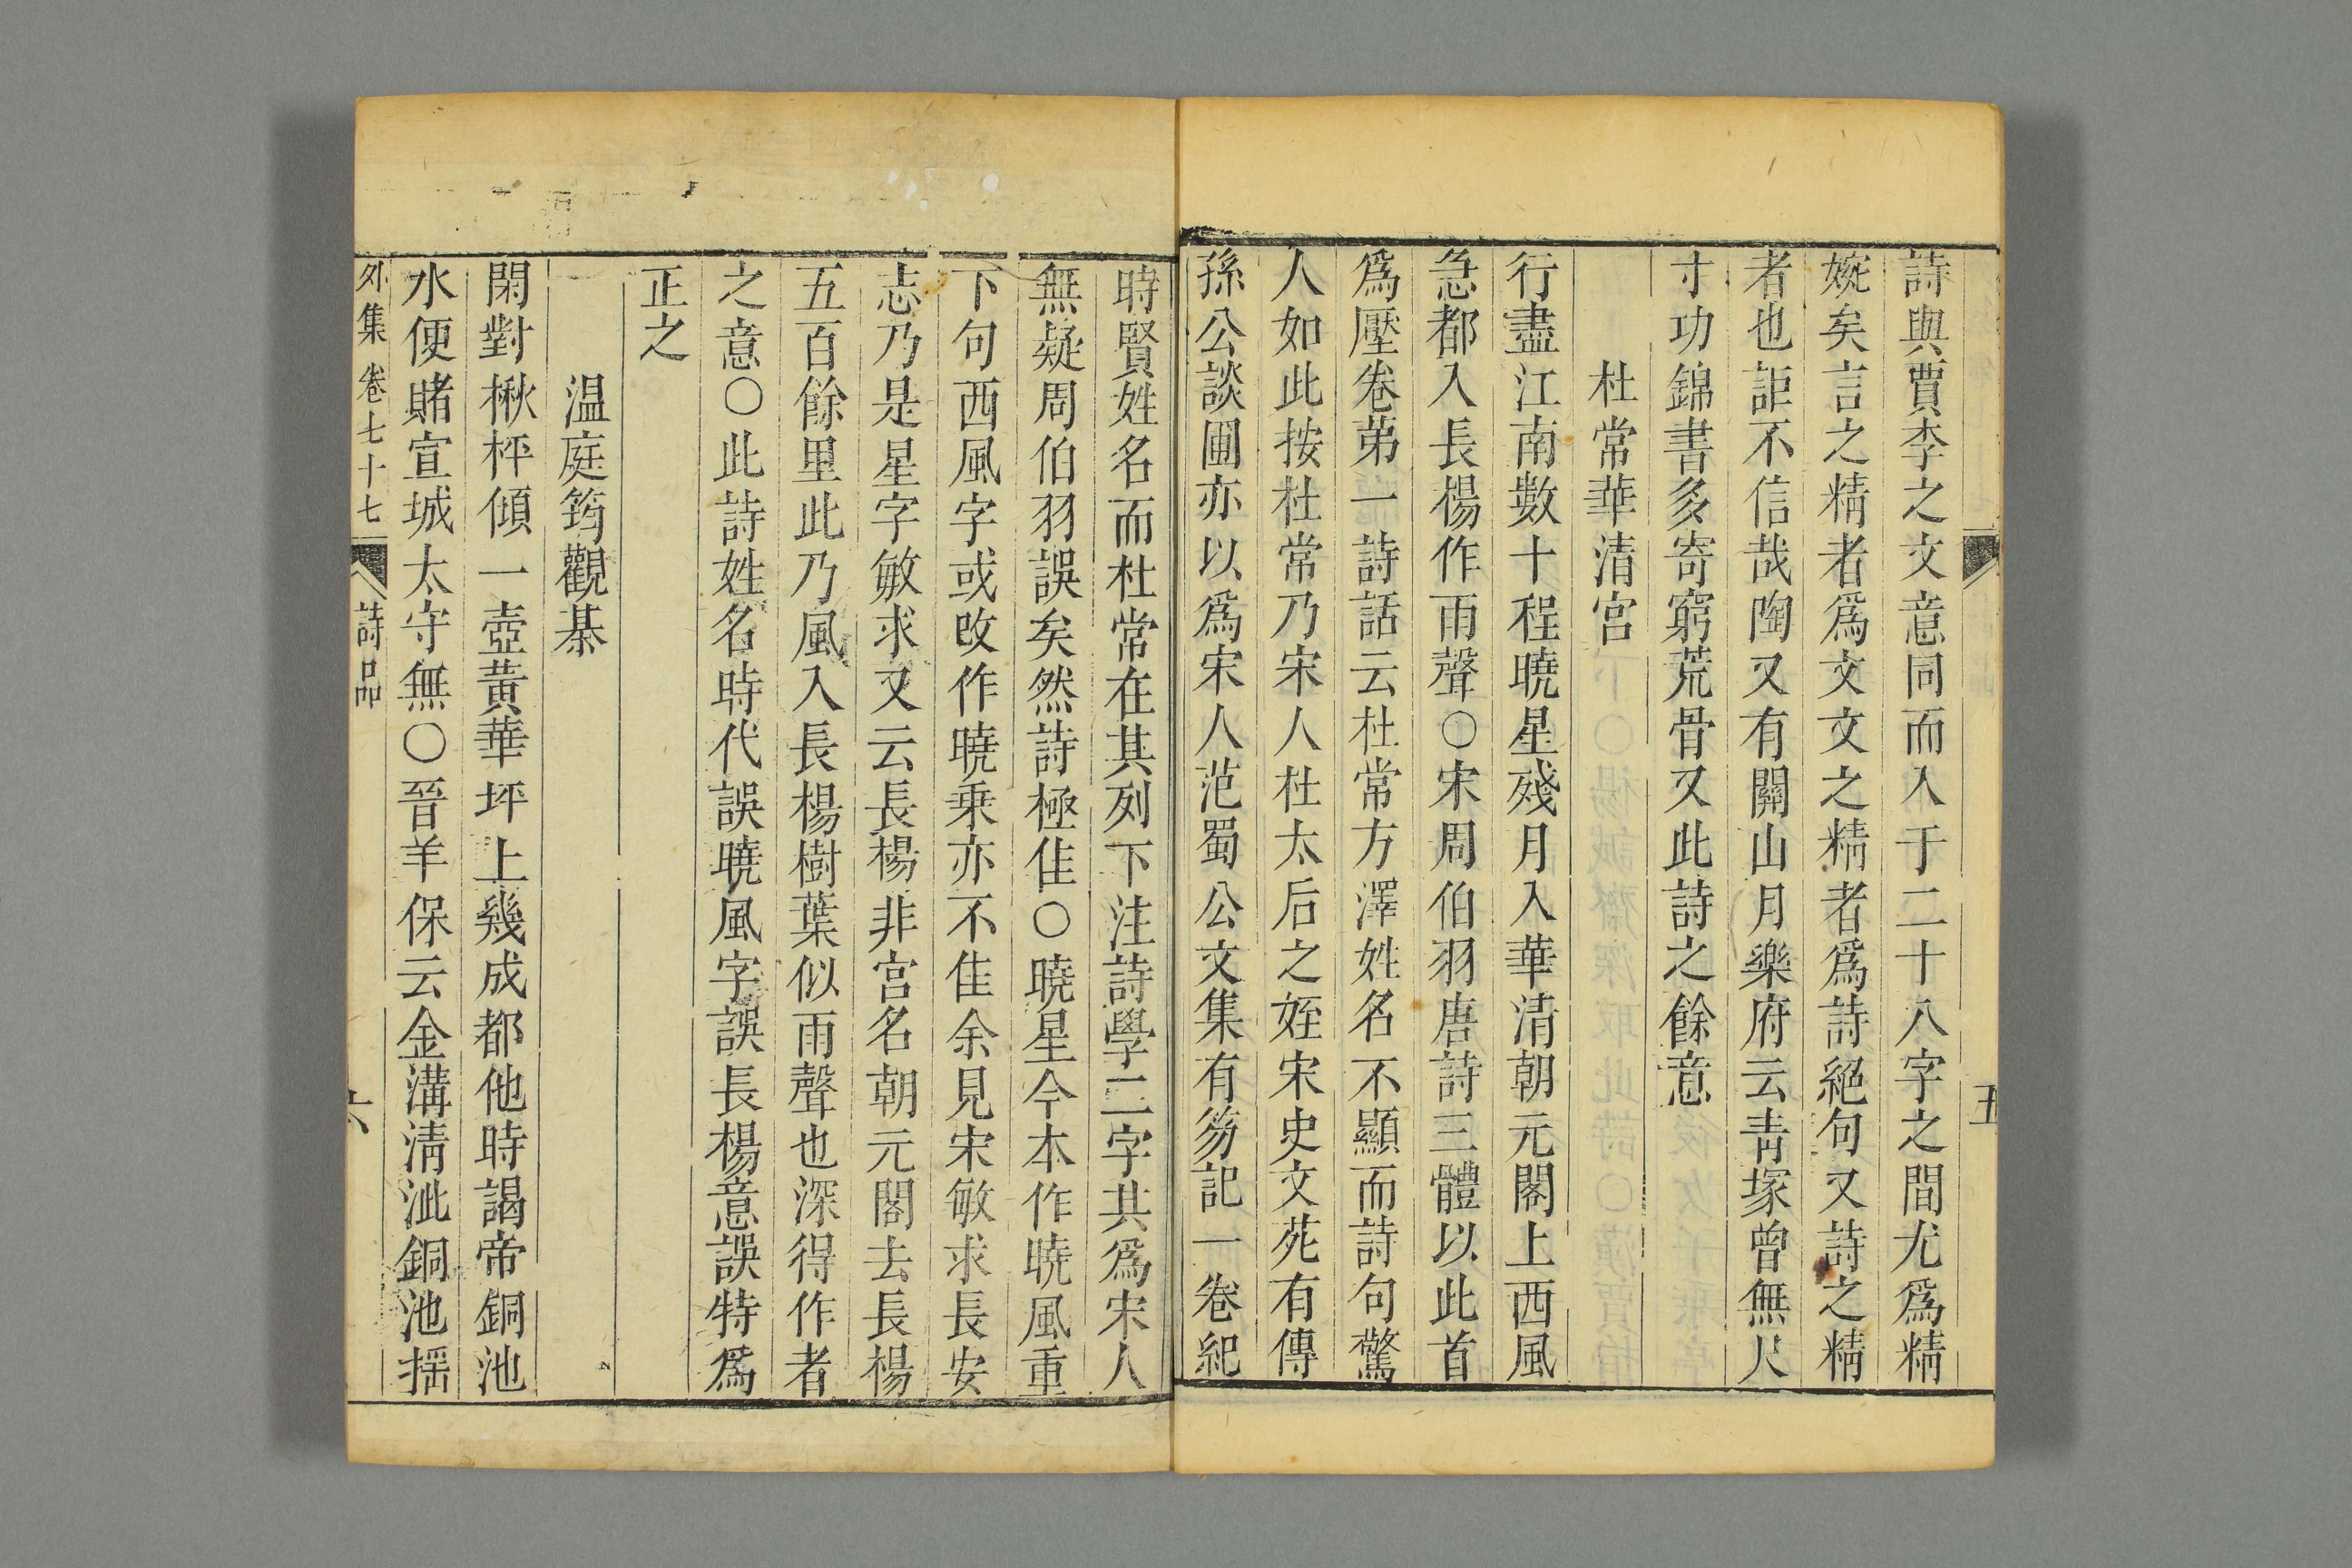 詩與賈李之文意同而入于二十八字之間尤爲精
婉矣言之精者爲文文之精者爲詩絕句又詩之精
者也詎不信哉陶又有關山月樂府云青塚曾無尺
寸功錦書多寄窮荒骨又此詩之餘意
杜常華清宮
行盡江南數十程曉星殘月入華清朝元閣上西風
急都入長楊作雨聲○宋周伯羽唐詩三體以此首
爲壓卷第一詩話云杜常方澤姓名不顯而詩句驚
人如此按杜常乃宋人杜太后之姪宋史文苑有傳
孫公談圃亦以爲宋人范蜀公文集有笏記一卷紀
五
時賢姓名而杜常在其列下注詩學二字其爲宋人
無疑周伯羽誤矣然詩極佳○曉星今本作曉風重
下句西風字或改作曉乘亦不佳余見宋敏求長安
志乃是星字敏求又云長楊非宮名朝元閣去長楊
五百餘里此乃風入長楊樹葉似雨聲也深得作者
之意○此詩姓名時代誤曉風字誤長楊意誤特爲
正之
温庭筠觀棊
閑對楸枰傾一壺黃華坪上幾成都他時謁帝銅池
水便賭宣城太守無○晉羊保云金溝清泚銅池揺
外集 卷七十七 詩品 六